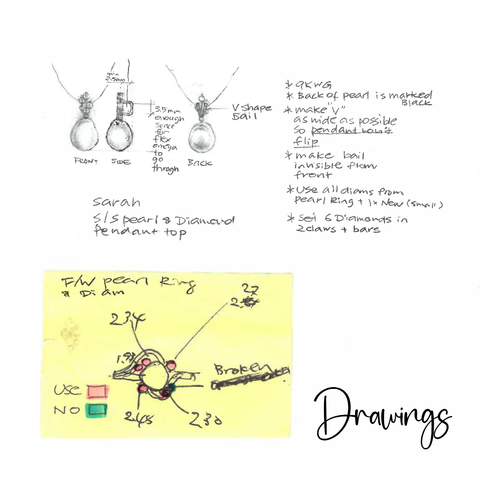 min
2.5mm
5.5mm
enough
space
for
flex
omega
to
go
through
V shape
Bail
FRONT SIDE BACK
Sarah
S/S pearl & Diamond
Pendant top
* 9KWG
* Back of pearl is marked
Black
* make "V"
as wide as possible
so pendant won't
flip
* make bail
invisible from
front
* Use all diams from
pearl Ring + 1x New (small)
* Set 6 Diamonds in
2 claws + bars
F/W pearl Ring
& Diam
27
234
Broken
USE
NO
245
230
Drawings